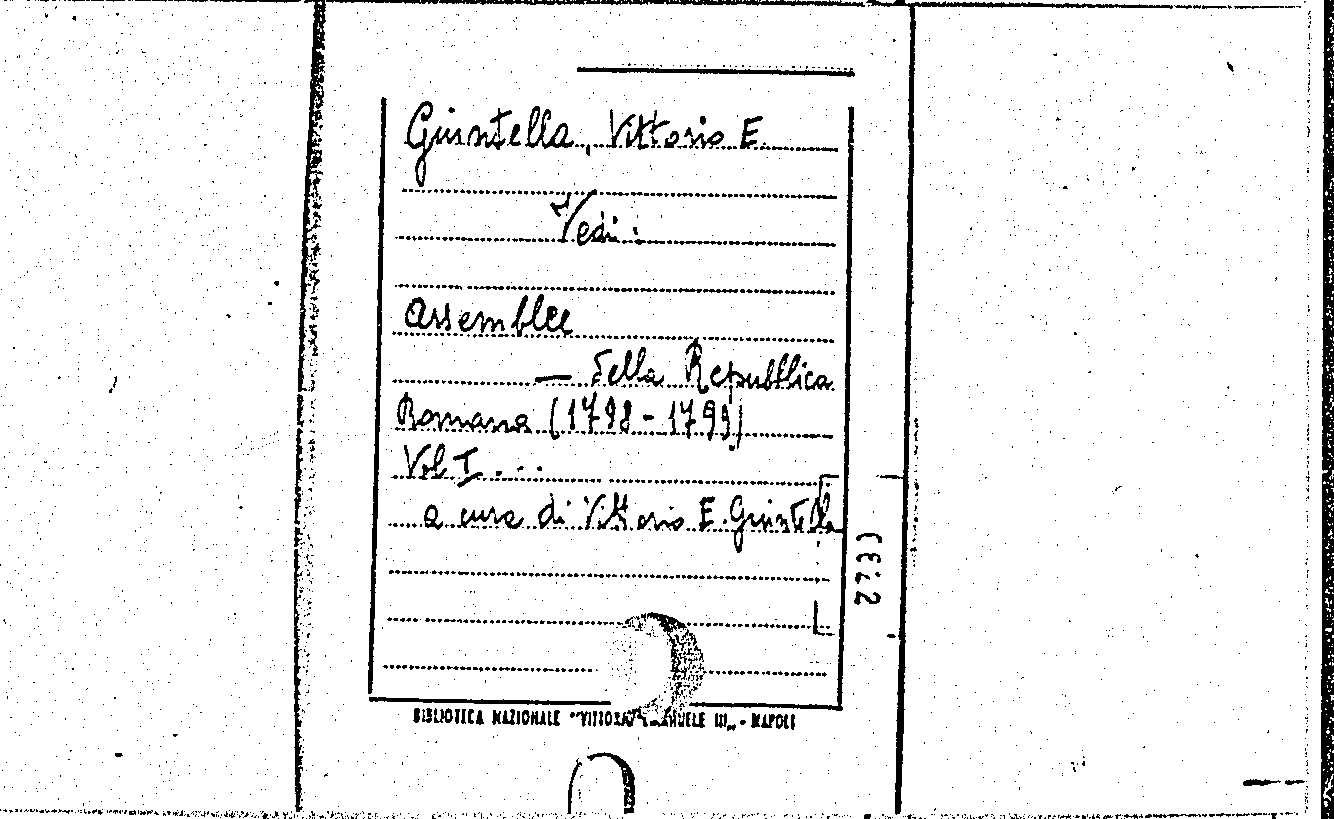 Giuntella, Vittorio E.
Vedi:
Assemblee
— della Repubblica
Romana (1798-1799)
Vol I....
a cura di Vittorio E. Giuntella
BIBLIOTECA NAZIONALE "VITTORIO EMANUELE III„ - NAPOLI